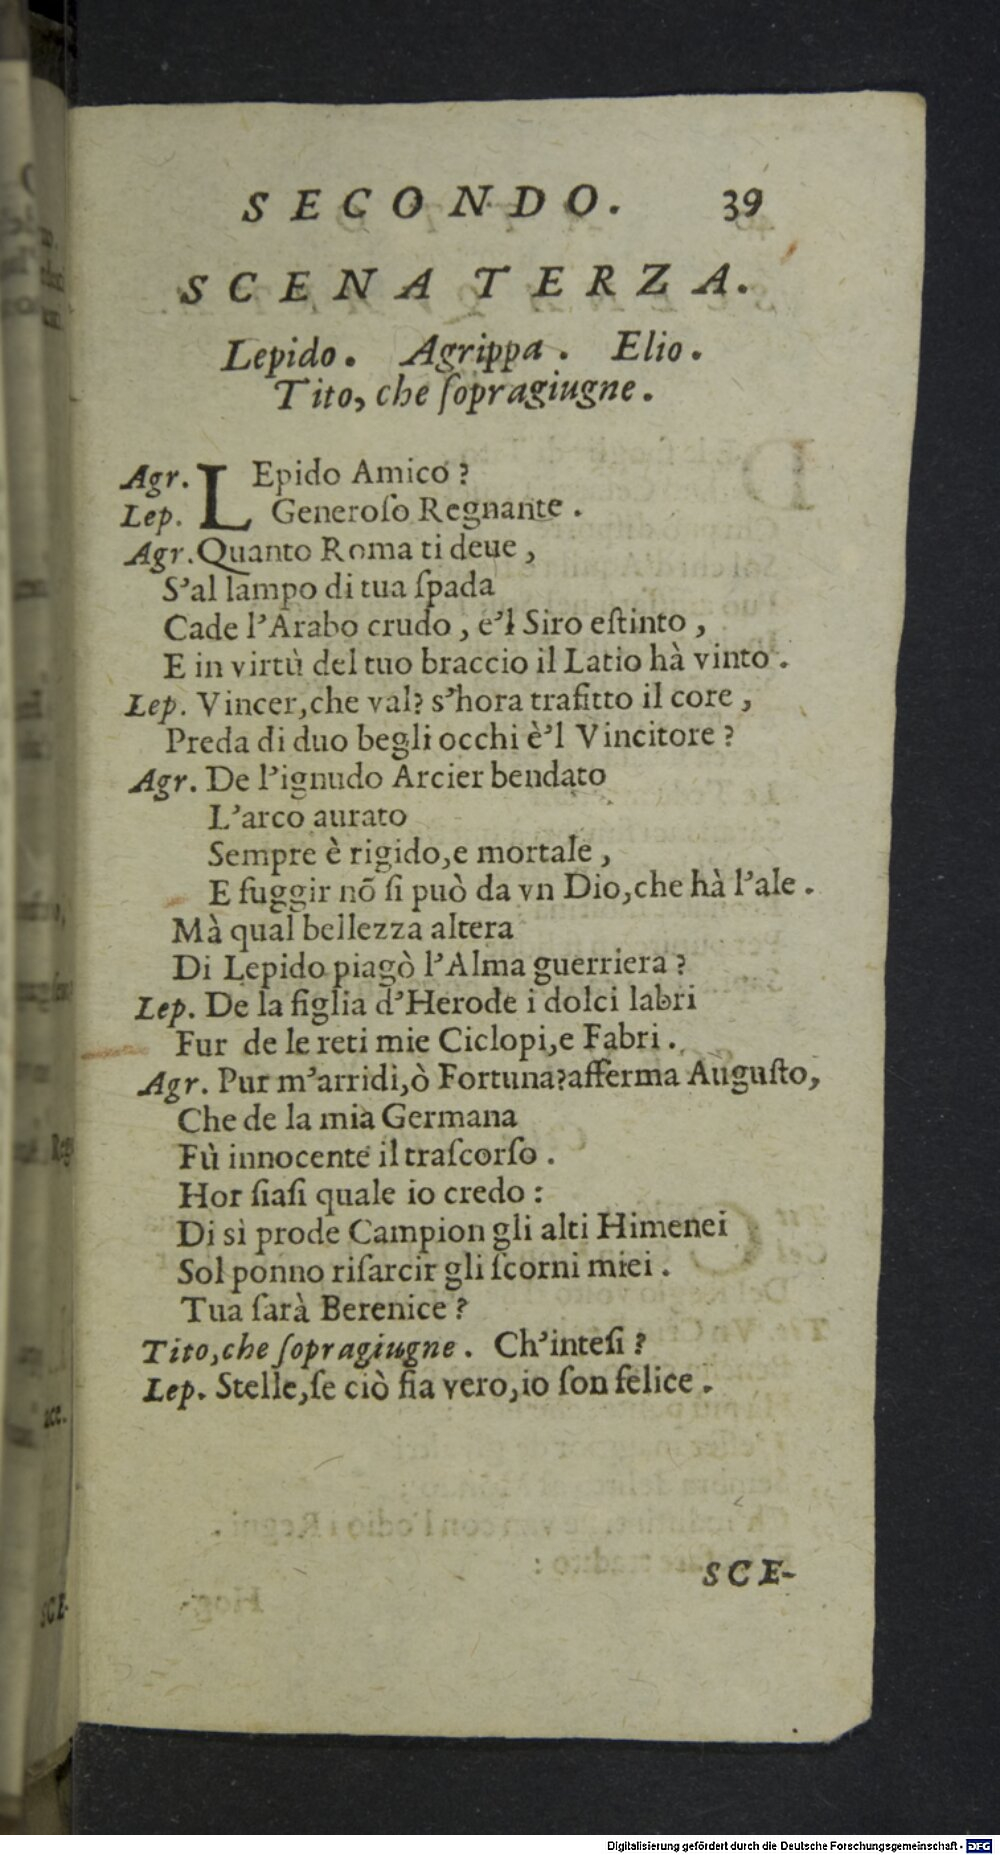 SECONDO. 39
SCENA TERZA.
Lepido. Agrippa. Elio.
Tito, che ſopragiugne.
Agr. LEpido Amico?
Lep. Generoſo Regnante.
Agr. Quanto Roma ti deue,
S'al lampo di tua ſpada
Cade l'Arabo crudo, e'l Siro eſtinto,
E in virtù del tuo braccio il Latio hà vinto.
Lep. Vincer, che val? s'hora trafitto il core,
Preda di duo begli occhi è'l Vincitore?
Agr. De l'ignudo Arcier bendato
L'arco aurato
Sempre è rigido, e mortale,
E fuggir nõ ſi può da vn Dio, che hà l'ale.
Mà qual bellezza altera
Di Lepido piagò l'Alma guerriera?
Lep. De la figlia d'Herode i dolci labri
Fur de le reti mie Ciclopi, e Fabri.
Agr. Pur m'arridi, ò Fortuna? afferma Auguſto,
Che de la mia Germana
Fù innocente il traſcorſo.
Hor ſiaſi quale io credo:
Di sì prode Campion gli alti Himenei
Sol ponno riſarcir gli ſcorni miei.
Tua ſarà Berenice?
Tito, che ſopragiugne. Ch'inteſi?
Lep. Stelle, ſe ciò fia vero, io ſon felice.
SCE-
Digitalisierung gefördert durch die Deutsche Forschungsgemeinschaft - DFG